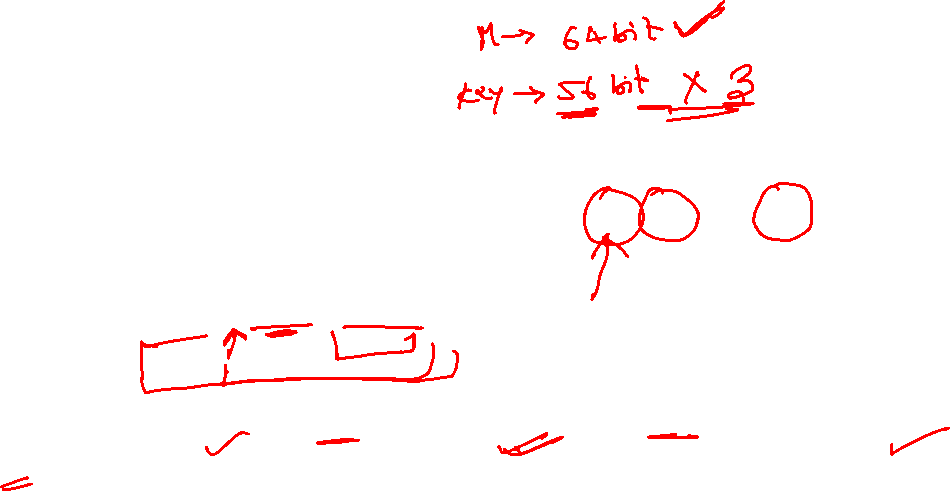 M → 64 bit ✓
Key → 56 bit × 3